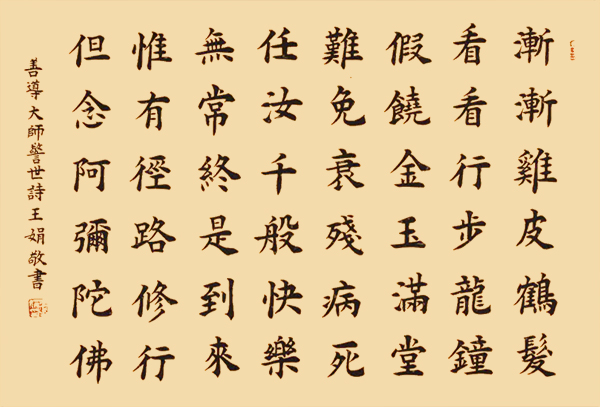 漸漸雞皮鶴髮
看看行步龍鐘
假饒金玉滿堂
難免衰殘病死
任汝千般快樂
無常終是到來
惟有徑路修行
但念阿彌陀佛
善導大師警世詩王娟敬書